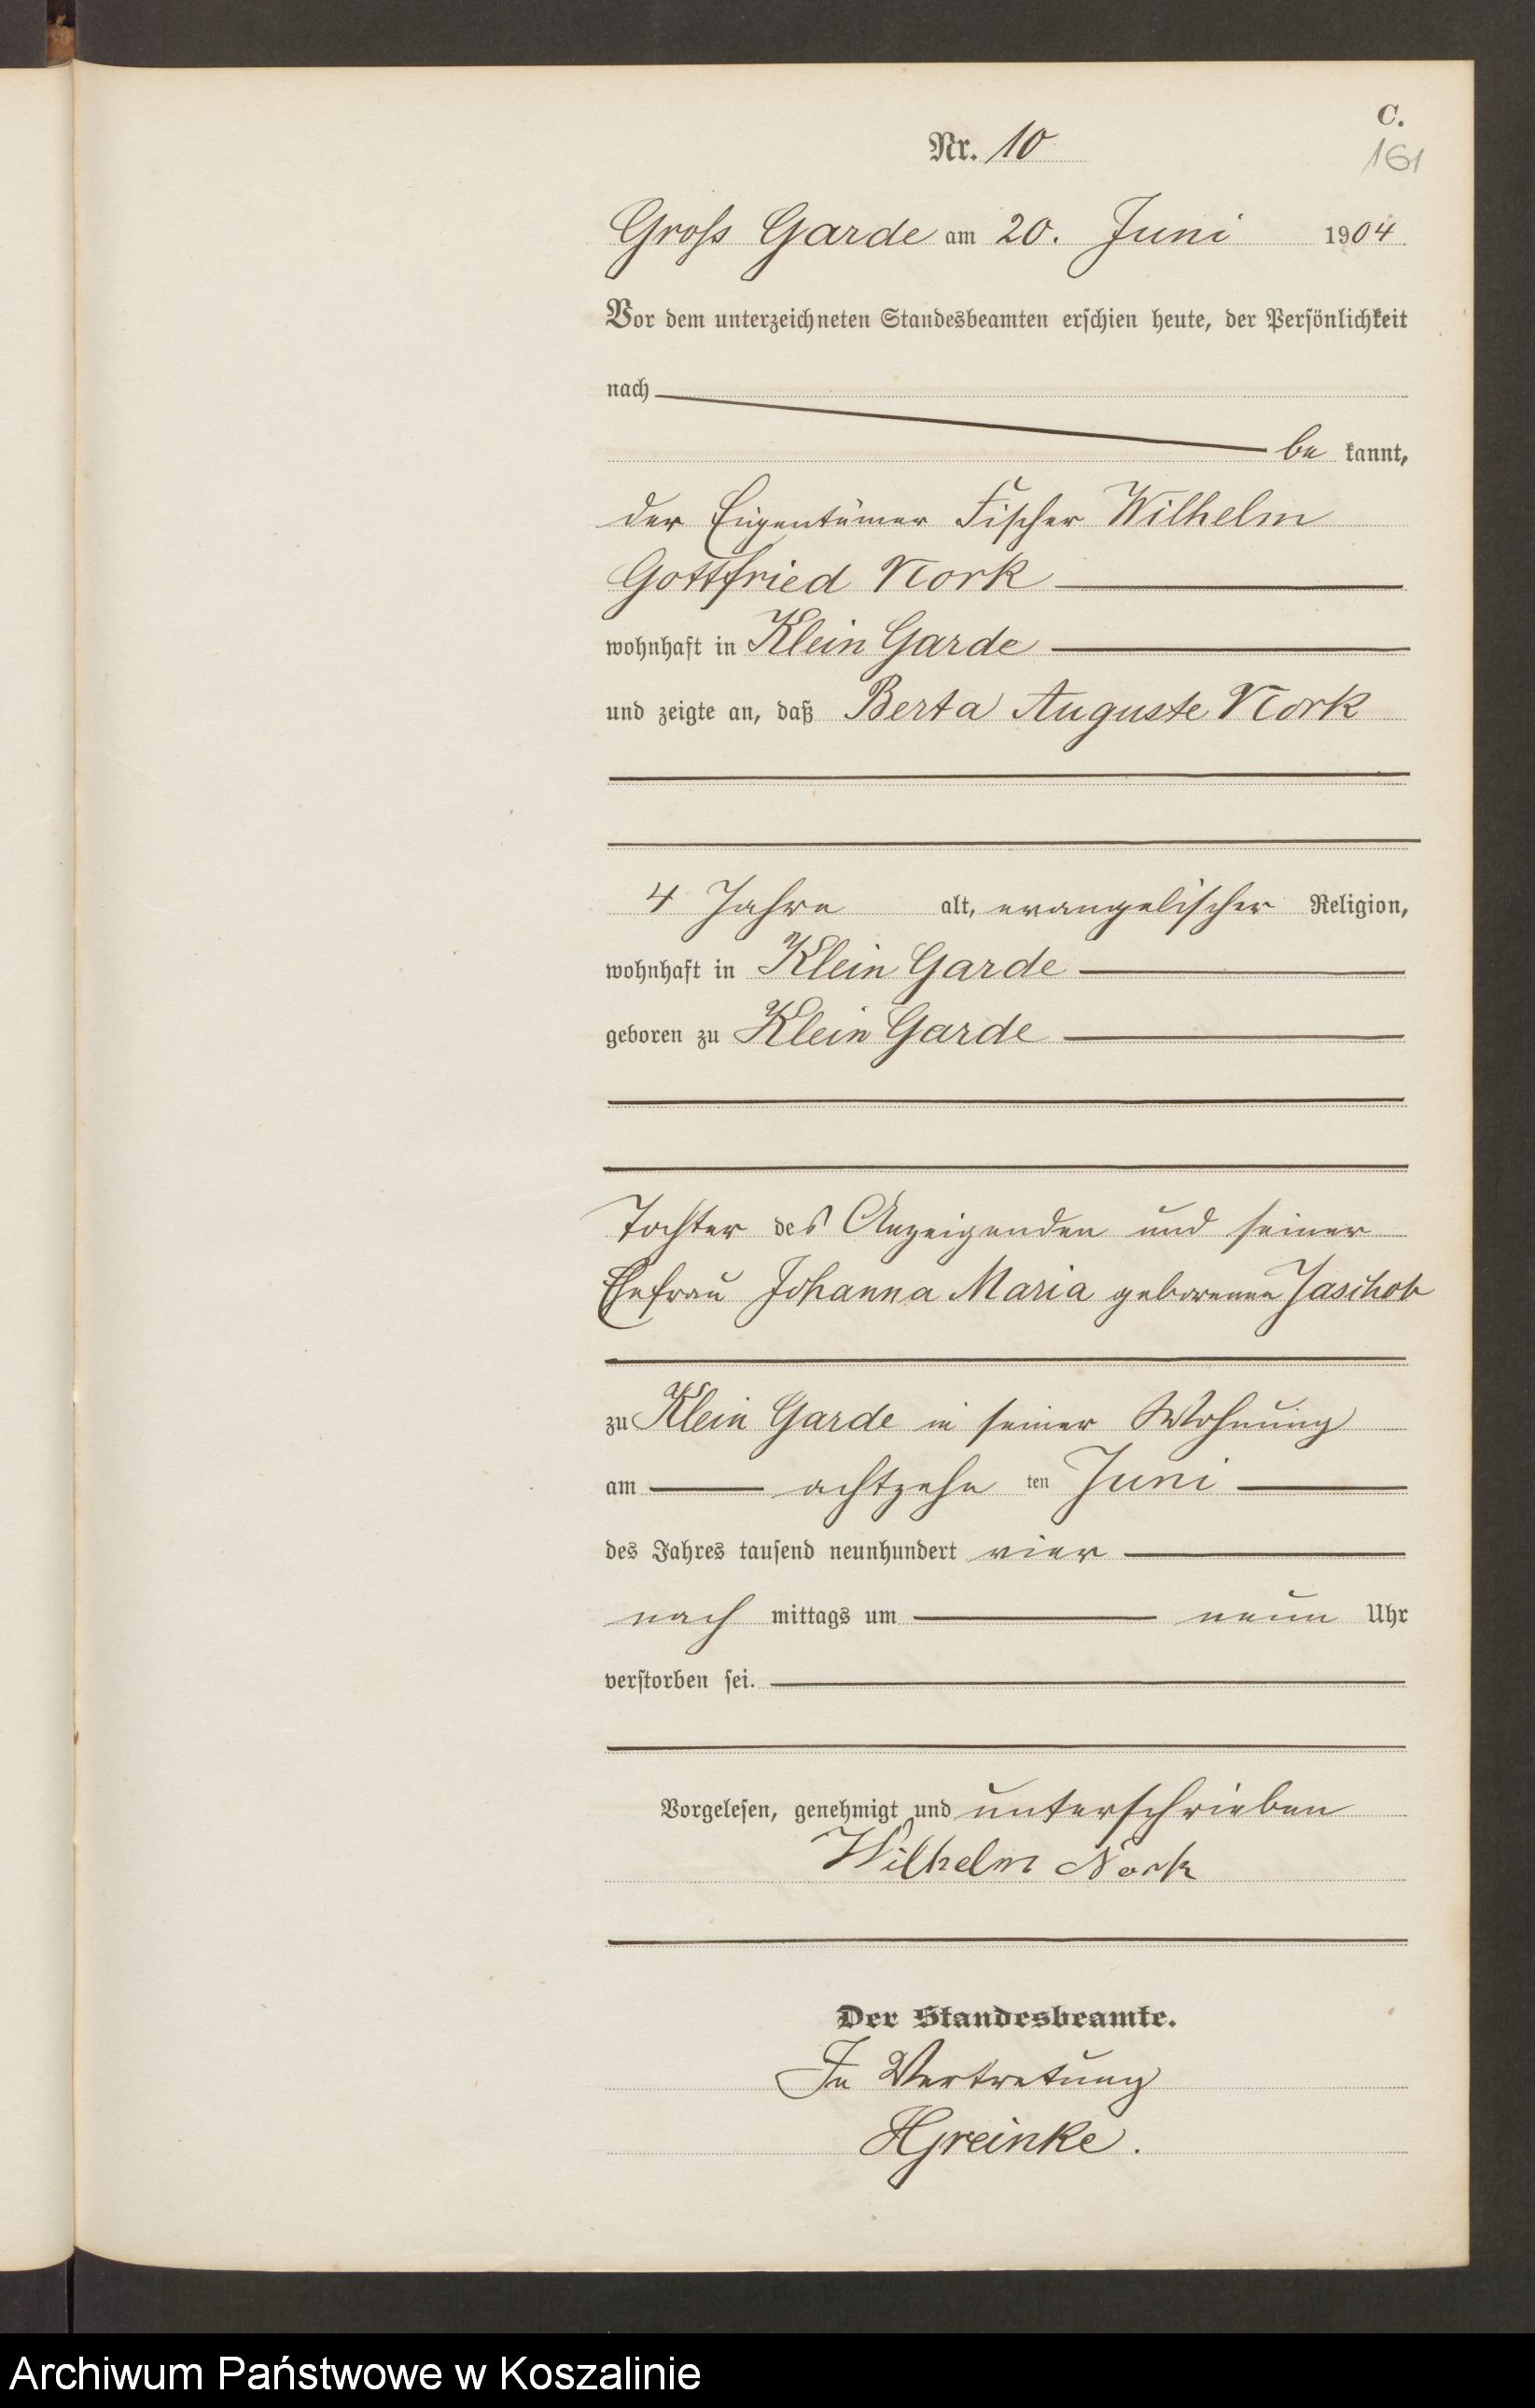 C.
Nr. 10
161
Gross Garde am 20. Juni 1904
Vor dem unterzeichneten Standesbeamten erschien heute, der Persönlichkeit
nach
be kannt,
der Eigentümer Fischer Wilhelm
Gottfried Nork
wohnhaft in Klein Garde
und zeigte an, daß Berta Auguste Nork
4 Jahre alt, evangelischer Religion,
wohnhaft in Klein Garde
geboren zu Klein Garde
Tochter des Anzeigenden und seiner
Ehefrau Johanna Maria geborenen Jaschob
zu Klein Garde in seiner Wohnung
am achtzehn ten Juni
des Jahres tausend neunhundert vier
nach mittags um neun Uhr
verstorben sei.
Vorgelesen, genehmigt und unterschrieben
Wilhelm Nork
Der Standesbeamte.
In Vertretung
HGreinke.
Archiwum Państwowe w Koszalinie